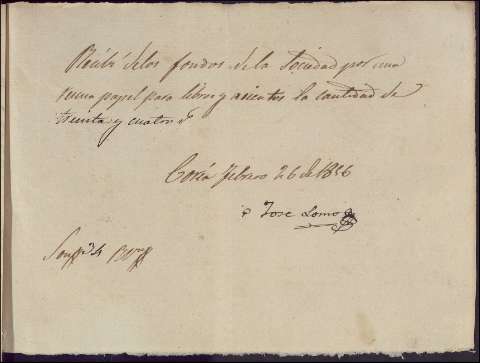 Recibí de los fondos de la Sociedad por una
resma papel para libros y asientos la cantidad de
treinta y cuatro r.s
Coria Febrero 26 de 1856
Jose Lomo
Son 34 R.s